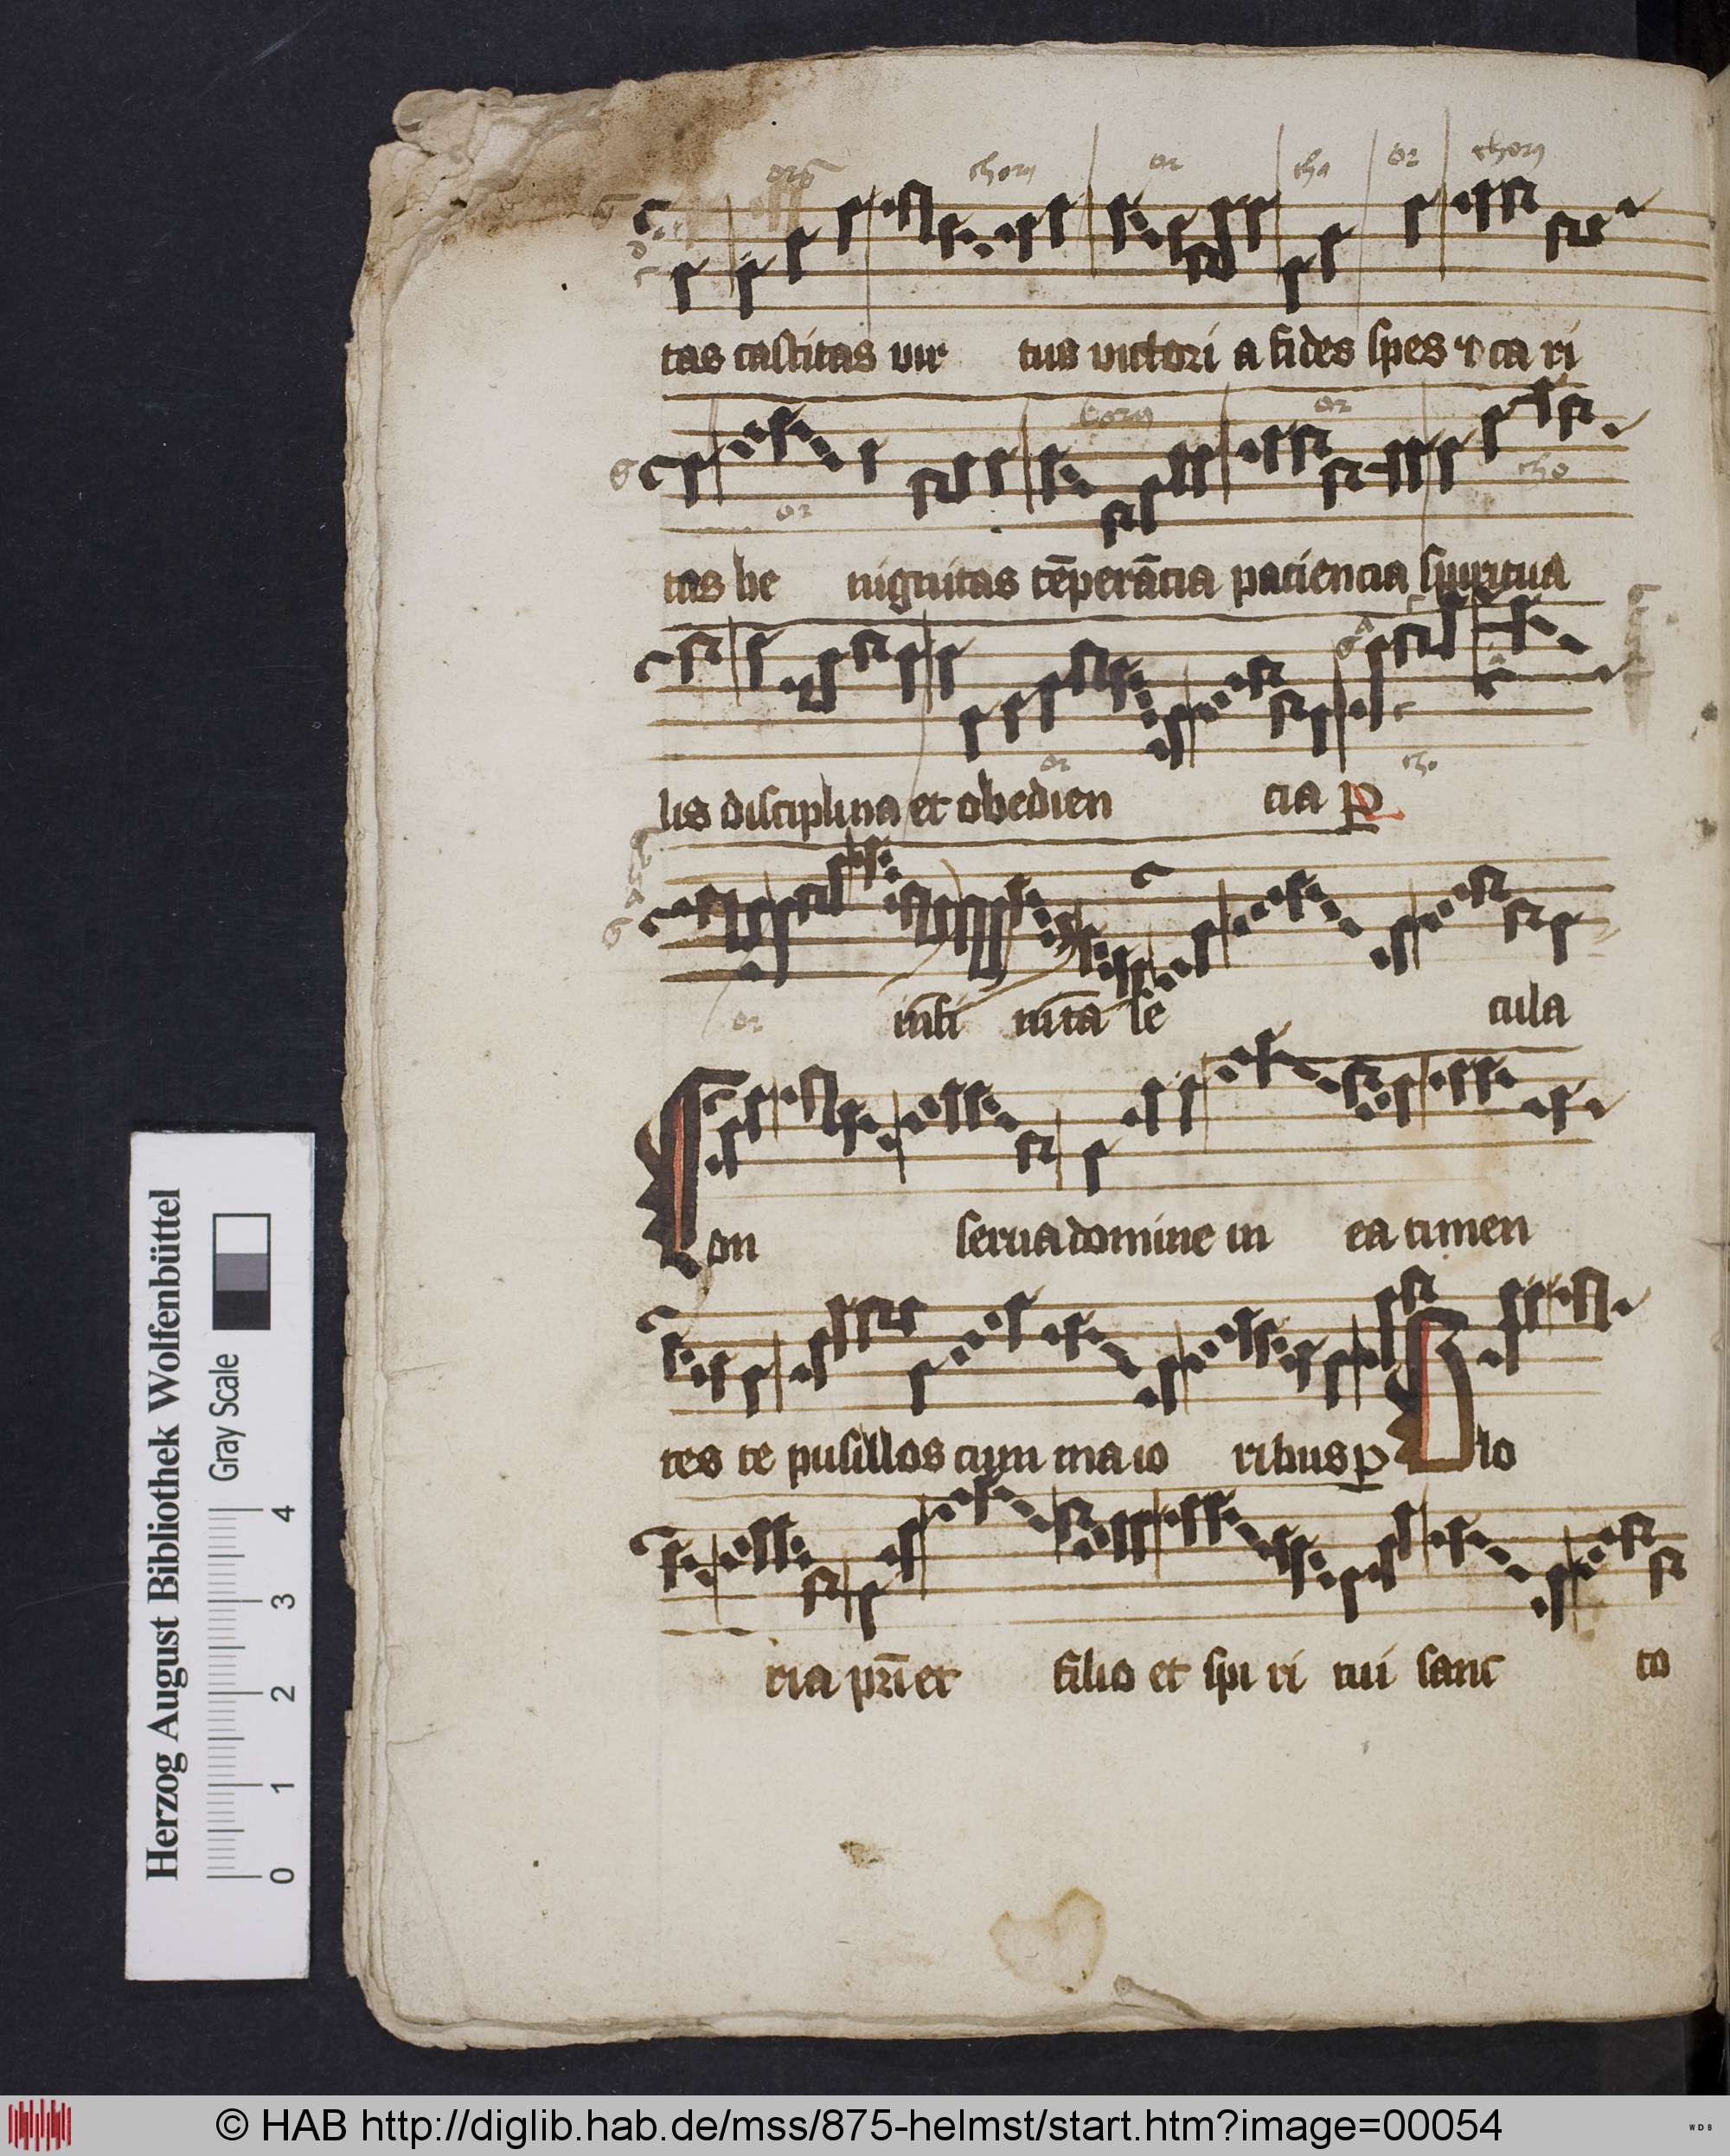 org chorus or cho or chorus
tas castitas vir tus victori a fides spes et ca ri
or chorus or cho
tas be nignitas tēperācia paciencia spiritua
or cho
lis disciplina et obedien cia p
or
infi nita se cula
Con serua domine in ea timen
tes te pusillos cum maio ribus p Glo
ria pri et filio et spi ri tui sanc to
Herzog August Bibliothek Wolfenbüttel
Gray Scale
0 1 2 3 4
© HAB http://diglib.hab.de/mss/875-helmst/start.htm?image=00054
WDB